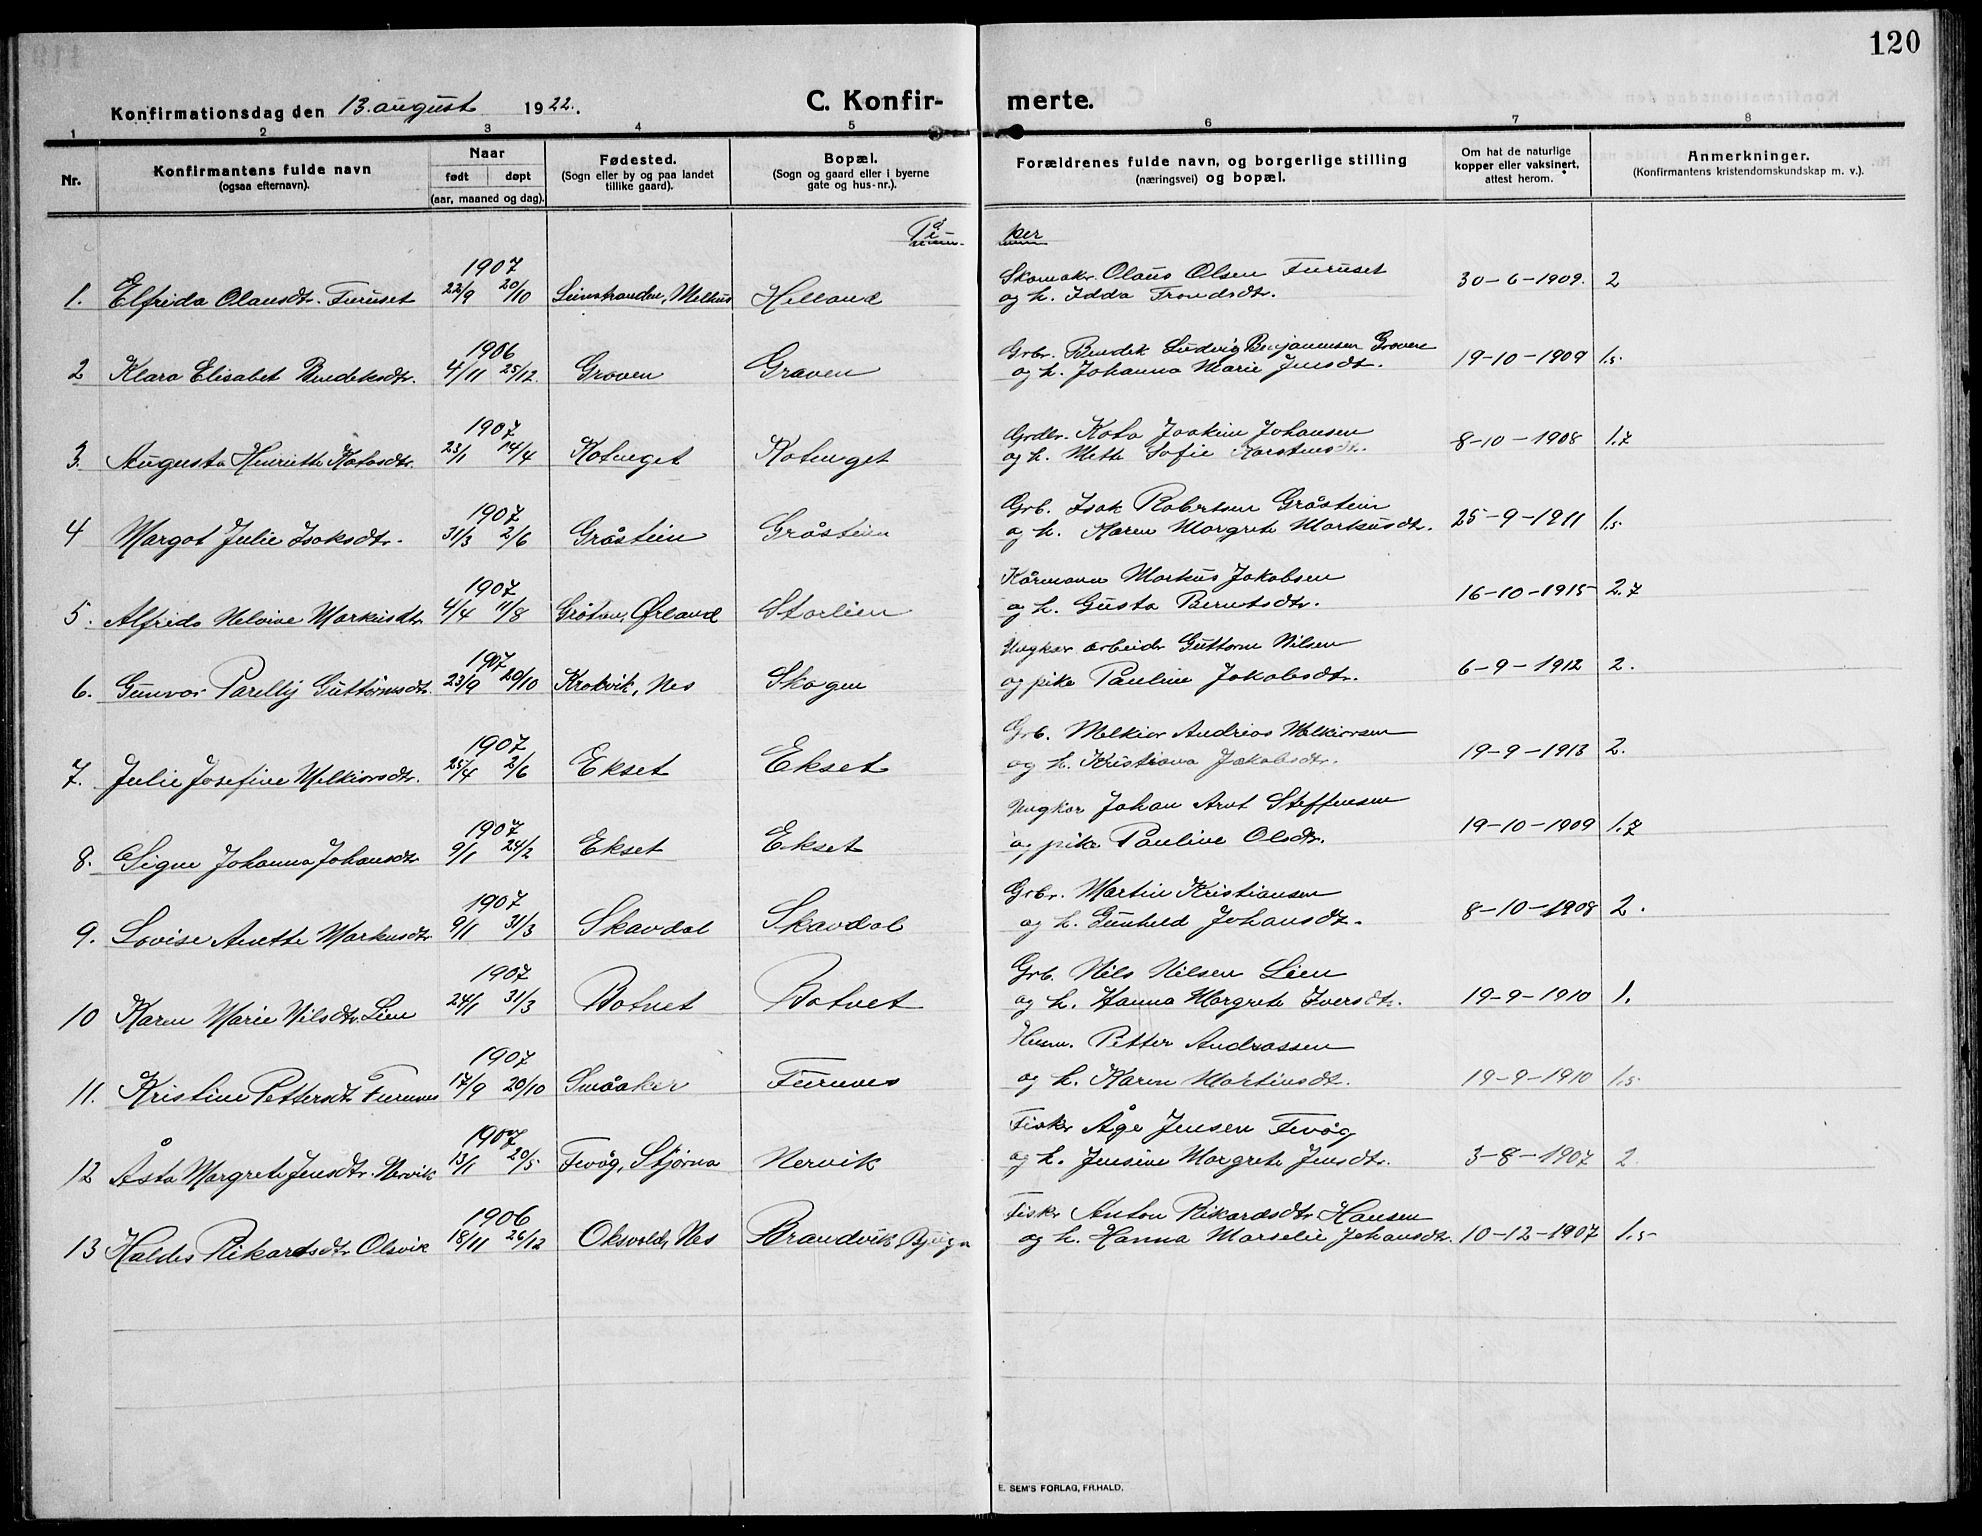 120
Konfirmationsdag den 13. august 1922.
C. Konfir- merte.
1 2 3 4 5 6 7 8
Nr.
Konfirmantens fulde navn
(ogsaa efternavn).
Naar
født døpt
(aar, maaned og dag).
Fødested.
(Sogn eller by og paa landet
tillike gaard).
Bopæl.
(Sogn og gaard eller i byerne
gate og hus-nr.).
Forældrenes fulde navn, og borgerlige stilling
(næringsvei) og bopæl.
Om hat de naturlige
kopper eller vaksinert,
attest herom.
Anmerkninger.
(Konfirmantens kristendomskundskap m. v.).
Pi- ker
1907 Skomakr. Olaus Olsen Furuset
1. Elfrida Olausdtr. Furuset 22/9 20/10 Leinstranden, Melhus Helland og h. Idda Trondsdtr. 30-6-1909. 2
1906 Grbr. Bendik Ludvig Benjaminsen Groven
2 Klara Elisabet Bendiksdtr. 4/11 25/12. Groven Graven og h. Johanna Marie Jensdtr. 19-10-1909 1.5
1907 Grdbr. Kota Joakim Johansen
3. Augusta Henriette Kotasdtr. 23/1 14/4 Kotenget Kotenget og h. Mette Sofie Karstensdtr. 8-10-1908 1.7
1907 Grb. Isak Robertsen Gråstein
4 Margot Julie Isaksdtr. 31/3 2/6 Gråstein Gråstein og h. Karen Margrete Markusdtr. 25-9-1911 1.5
1907 Kårmann Markus Jakobsen
5. Alfrida Nelvine Markusdtr. 4/4 11/8 Grøtan, Ørland Storlien og h. Gusta Berntsdtr. 16-10-1915 2.7
1907 Ungkar arbeidr Guttorm Nilsen
6. Gunvor Parelly Guttormsdtr. 23/9 20/10 Krokvik, Nes Skogen og pike Pauline Jakobsdtr. 6-9-1912 2.
1907 Grb. Melkior Andrias Melkiorsen
7. Julie Josefine Melkiorsdtr. 25/4 2/6 Ekset Ekset og h. Kristiana Jakobsdtr. 19-9-1913 2.
1907 Ungkar Johan Arnt Steffensen
8. Signe Johanna Johansdtr. 9/1 24/2 Ekset Ekset og pike Pauline Olsdtr. 19-10-1909 1.7
1907 Grbr. Martin Kristiansen
9. Lovise Anette Markusdtr 9/1 31/3 Skavdal Skavdal og h. Gunhild Johansdtr. 8-10-1908 2.
1907 Grb. Nils Nilsen Lien
10 Karen Marie Nilsdtr. Lien 24/1 31/3 Botnet Botnet og h. Hanna Margrete Iversdtr. 19-9-1910 1.
1907 Husm. Petter Andreassen
11. Kristine Pettersdtr Furunes 17/9 20/10 Småaker Furunes og h. Karen Martinsdtr. 19-9-1910 1.5
1907 Fiskr Åge Jensen Fevåg
12 Åsta Margrete Jensdtr. Nervik 13/1 20/5 Fevåg, Stjørna Nervik og h. Jensine Margrete Jensdtr. 3-8-1907 2.
1906 Fiskr Anton Rikardsdtr Hansen
13 Haldis Rikardsdtr. Olsvik 18/11 26/12 Oksvold, Nes Brandvik, Bjugn og h. Hanna Marselie Johansdtr. 10-12-1907 1.5
E. SEM'S FORLAG, FR.HALD.